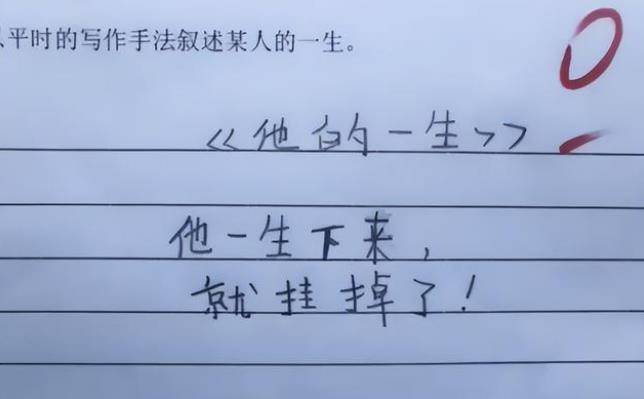 平时的写作手法叙述某人的一生。
《他的一生》
他一生下来，
就挂掉了！
0